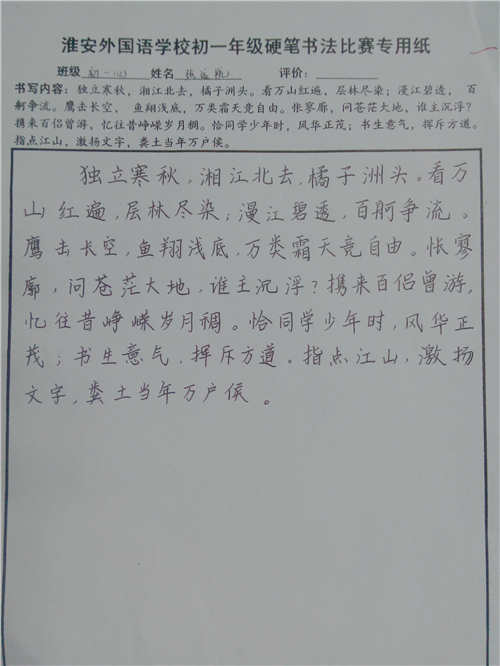 淮安外国语学校初一年级硬笔书法比赛专用纸
班级 初一(12) 姓名 张 评价:
书写内容:独立寒秋,湘江北去,橘子洲头。看万山红遍,层林尽染;漫江碧透,百
舸争流。鹰击长空,鱼翔浅底,万类霜天竞自由。怅寥廓,问苍茫大地,谁主沉浮?
携来百侣曾游,忆往昔峥嵘岁月稠。恰同学少年时,风华正茂;书生意气,挥斥方遒。
指点江山,激扬文字,粪土当年万户侯。
独立寒秋,湘江北去,橘子洲头。看万
山红遍,层林尽染;漫江碧透,百舸争流。
鹰击长空,鱼翔浅底,万类霜天竞自由。怅寥
廓,问苍茫大地,谁主沉浮?携来百侣曾游,
忆往昔峥嵘岁月稠。恰同学少年时,风华正
茂;书生意气,挥斥方遒。指点江山,激扬
文字,粪土当年万户侯。